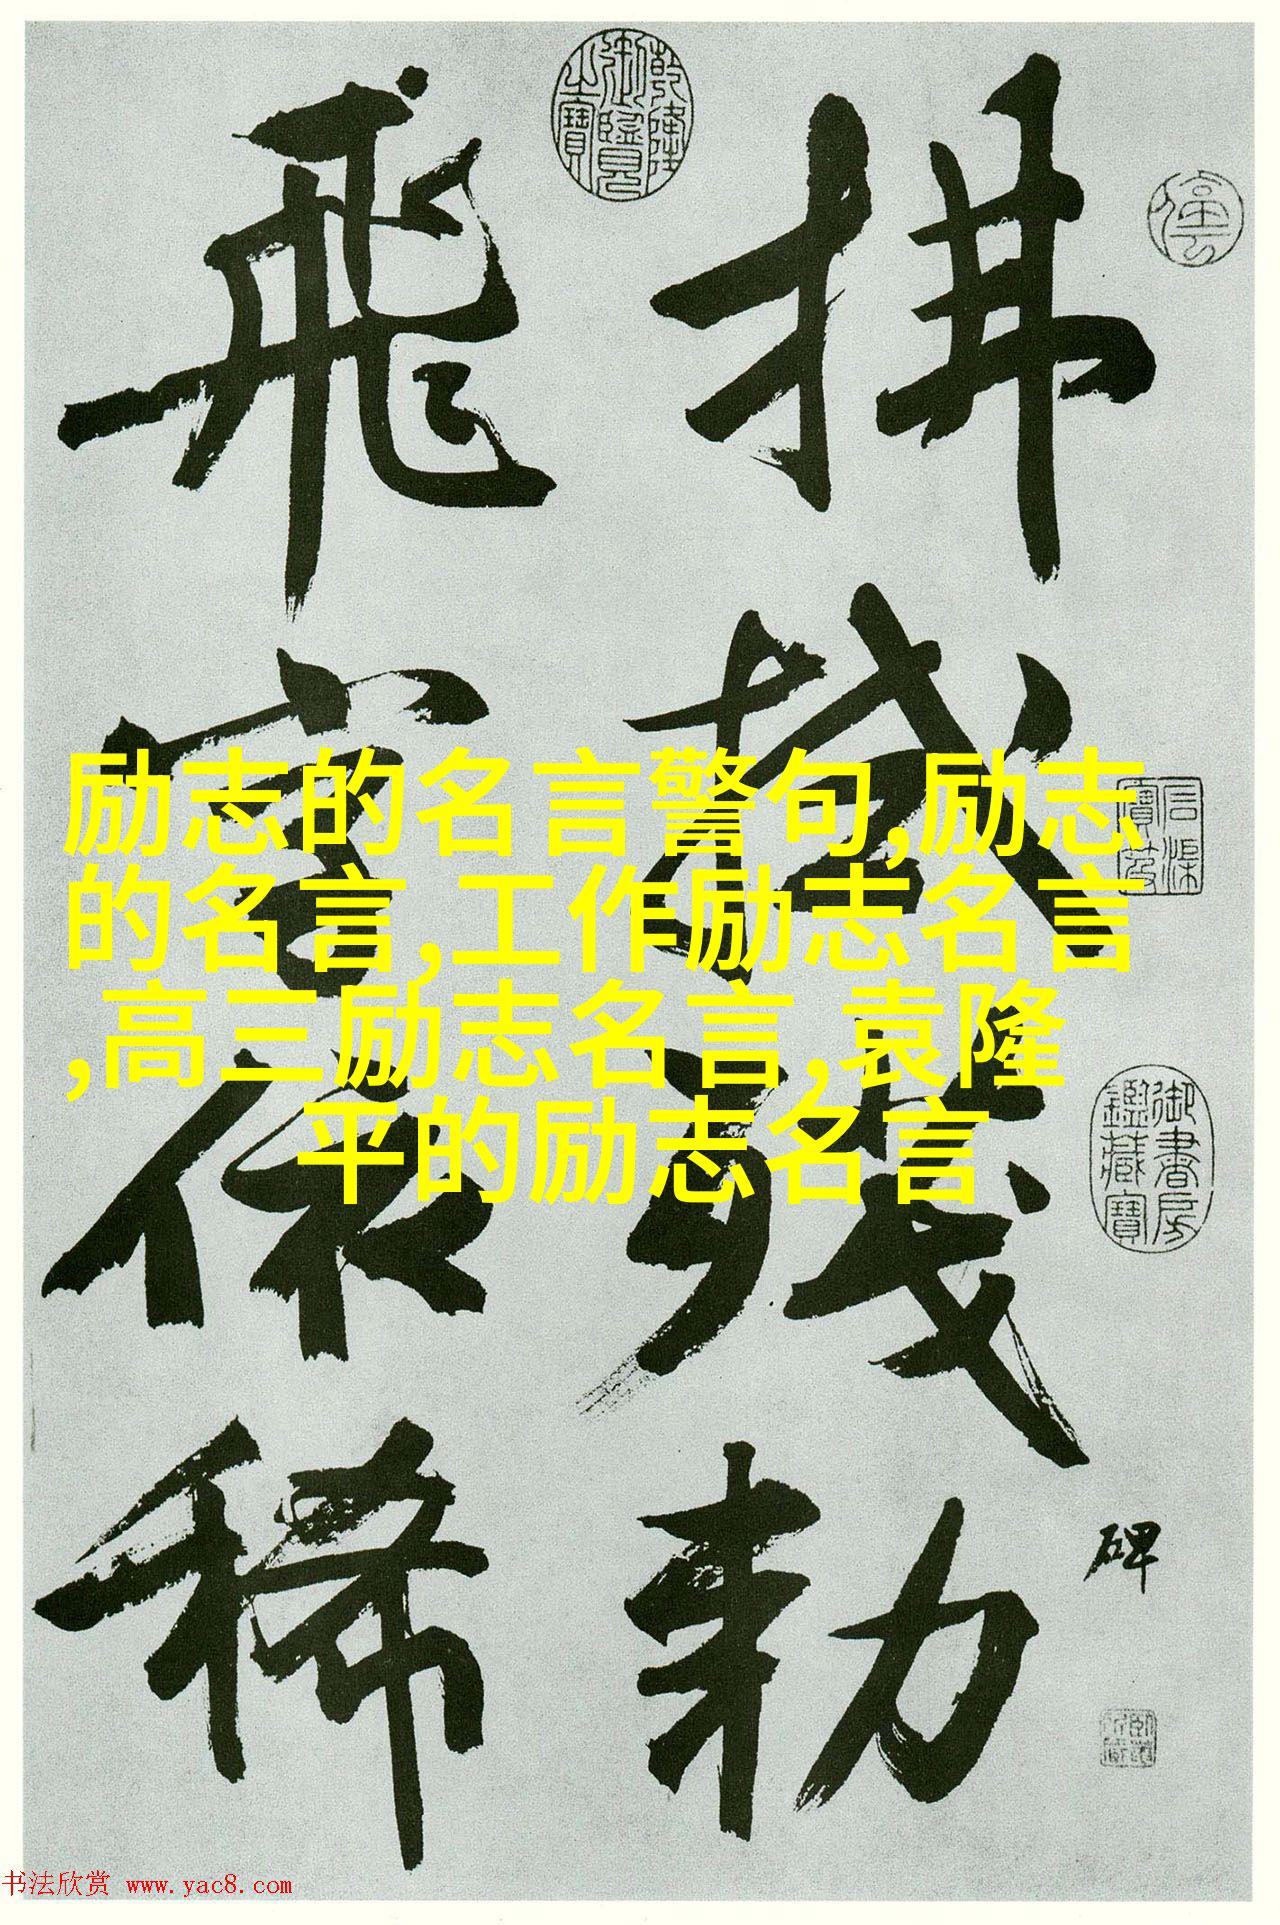 拂拭殘勅
碑
飛字依稀
乾隆御覽之寶
石渠寶笈
御書房鑑藏寶
励志的名言警句,励志
的名言,工作励志名言
,高三励志名言,袁隆
平的励志名言
书法欣赏 www.yac8.com